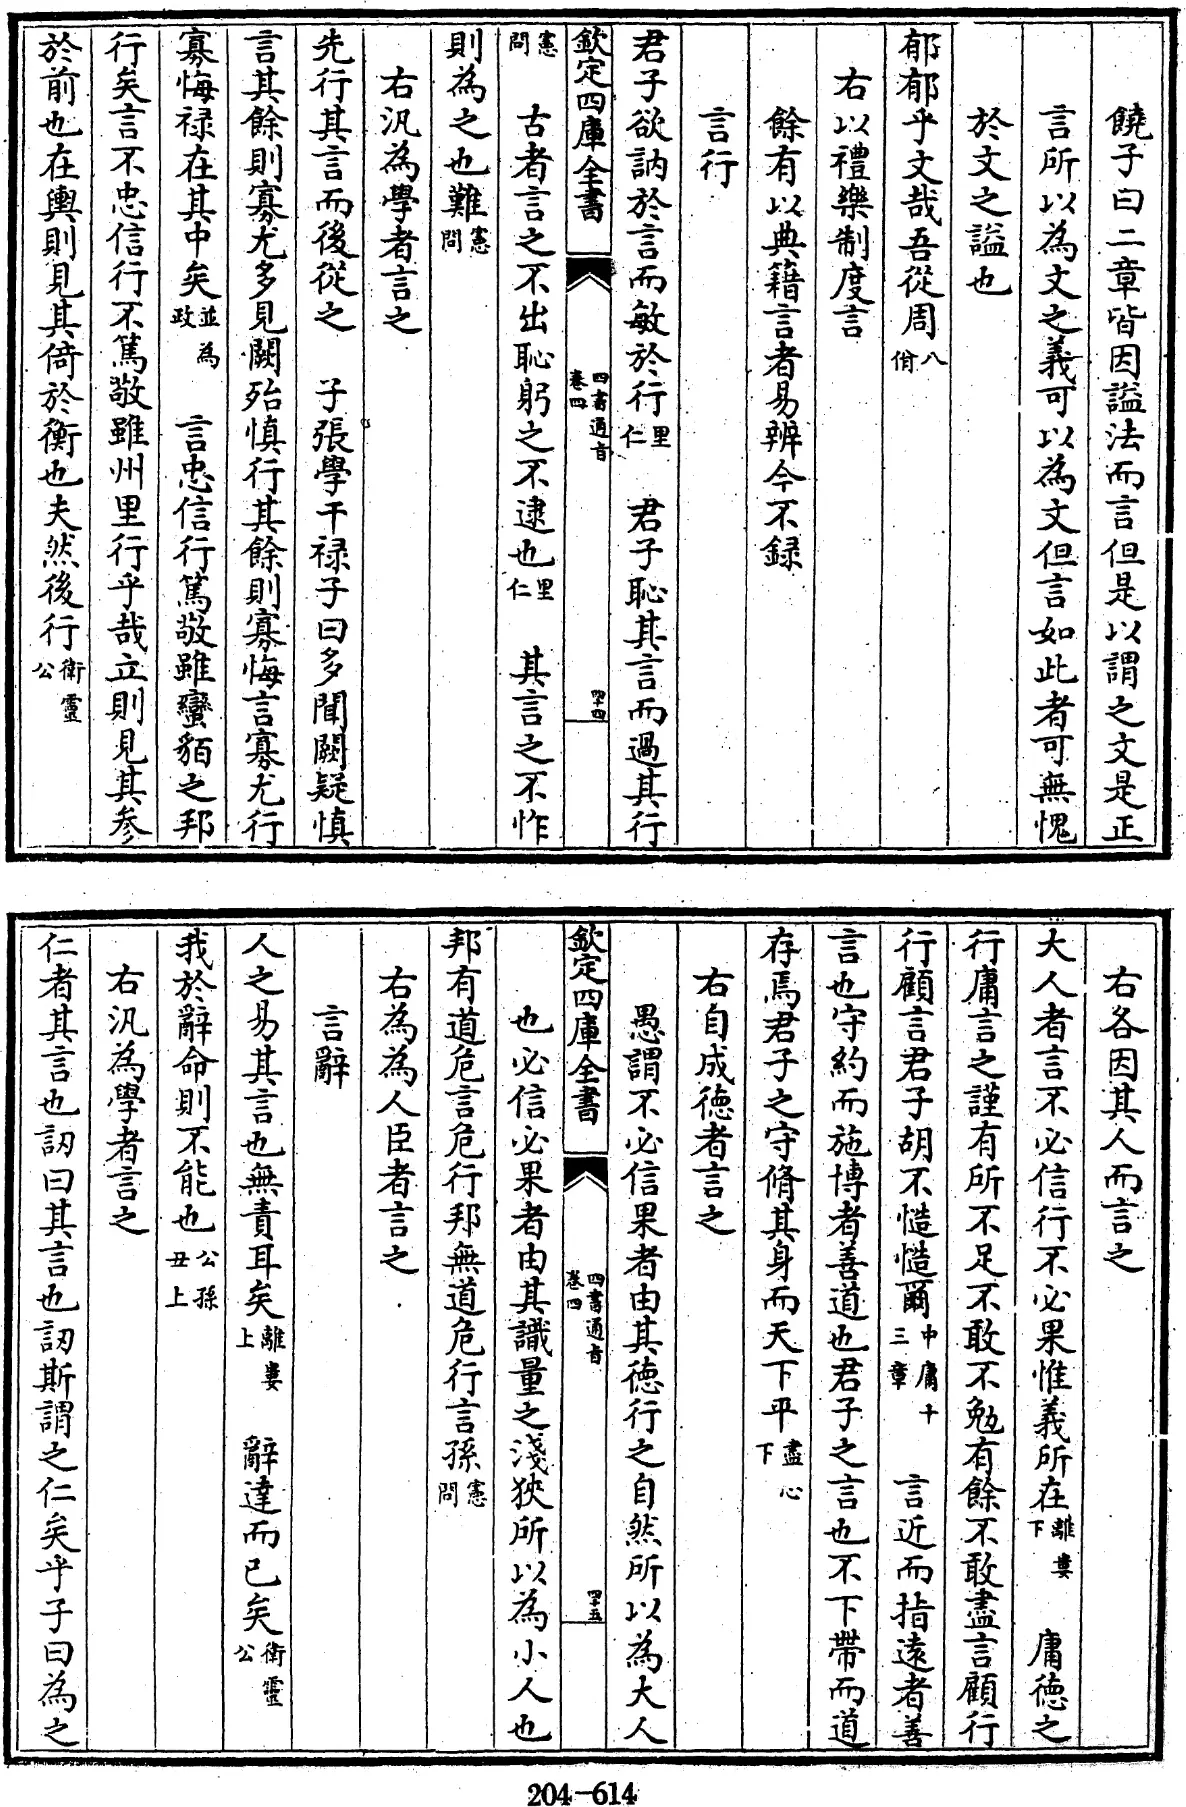 饒子曰二章皆因謚法而言但是以謂之文是正
言所以為文之義可以為文但言如此者可無愧
於文之謚也
郁郁乎文哉吾從周八佾
右以禮樂制度言
餘有以典籍言者易辨今不録
言行
君子欲訥於言而敏於行里仁 君子恥其言而過其行
欽定四庫全書 四書通旨 卷四 四十四
憲問 古者言之不出恥躬之不逮也里仁 其言之不怍
則為之也難憲問
右汎為學者言之
先行其言而後從之 子張學干禄子曰多聞闕疑慎
言其餘則寡尤多見闕殆慎行其餘則寡悔言寡尤行
寡悔禄在其中矣並為政 言忠信行篤敬雖蠻貊之邦
行矣言不忠信行不篤敬雖州里行乎哉立則見其參
於前也在輿則見其倚於衡也夫然後行衛靈公
右各因其人而言之
大人者言不必信行不必果惟義所在離婁下 庸德之
行庸言之謹有所不足不敢不勉有餘不敢盡言顧行
行顧言君子胡不慥慥爾中庸十三章 言近而指遠者善
言也守約而施博者善道也君子之言也不下帶而道
存焉君子之守脩其身而天下平盡心下
右自成德者言之
愚謂不必信果者由其德行之自然所以為大人
欽定四庫全書 四書通旨 卷四 四十五
也必信必果者由其識量之淺狹所以為小人也
邦有道危言危行邦無道危行言孫憲問
右為為人臣者言之
言辭
人之易其言也無責耳矣離婁上 辭達而已矣衛靈公
我於辭命則不能也公孫丑上
右汎為學者言之
仁者其言也訒曰其言也訒斯謂之仁矣乎子曰為之
204-614